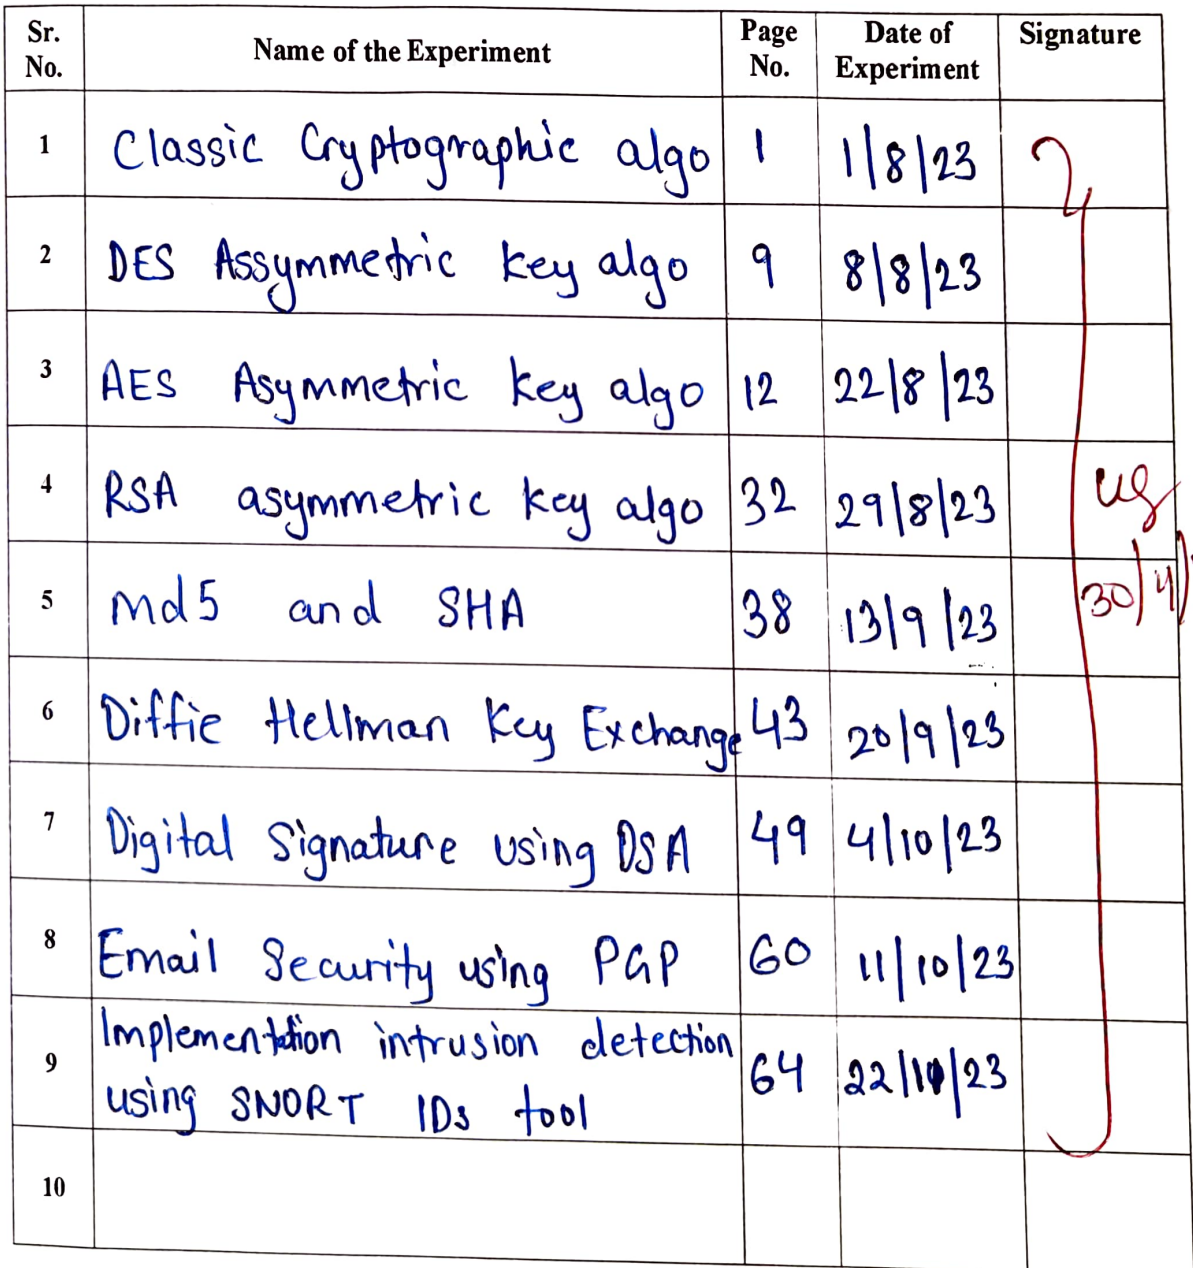 Sr. No. Name of the Experiment Page No. Date of Experiment Signature
1 Classic Cryptographic algo 1 1/8/23
2 DES Assymmetric key algo 9 8/8/23
3 AES Asymmetric key algo 12 22/8/23
4 RSA asymmetric key algo 32 29/8/23
5 Md5 and SHA 38 13/9/23
30/4/
6 Diffie Hellman Key Exchange 43 20/9/23
7 Digital Signature using DSA 49 4/10/23
8 Email Security using PGP 60 11/10/23
9 Implementation intrusion detection
using SNORT IDs tool 64 22/10/23
10